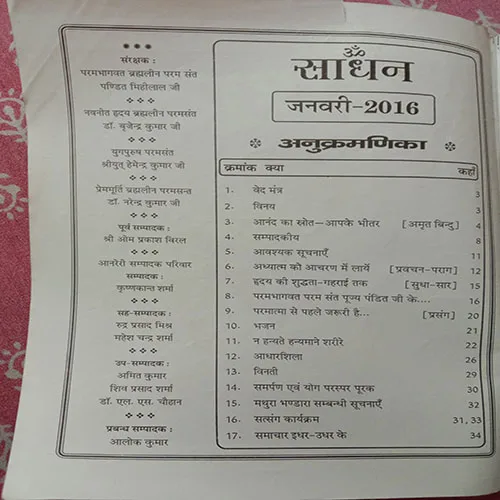 संरक्षक :
परमभागवत ब्रह्मलीन परम संत
पण्डित मिहीलाल जी
नवनीत हृदय ब्रह्मलीन परमसंत
डॉ. बृजेन्द्र कुमार जी
युगपुरुष परमसंत
श्रीयुत् हेमेन्द्र कुमार जी
प्रेममूर्ति ब्रह्मलीन परमसन्त
डॉ. नरेन्द्र कुमार जी
पूर्व सम्पादक :
श्री ओम प्रकाश बिरल
आनरेरी सम्पादक परिवार
सम्पादक :
कृष्णकान्त शर्मा
सह-सम्पादक :
रुद्र प्रसाद मिश्र
महेश चन्द्र शर्मा
उप-सम्पादक :
अमित कुमार
शिव प्रसाद शर्मा
डॉ. एल. एस. चौहान
प्रबन्ध सम्पादक :
आलोक कुमार
ॐ
साधन
जनवरी-2016
अनुक्रमणिका
क्रमांक क्या कहाँ
1. वेद मंत्र 3
2. विनय 3
3. आनंद का स्रोत–आपके भीतर [अमृत बिन्दु] 4
4. सम्पादकीय 8
5. आवश्यक सूचनाएँ 11
6. अध्यात्म को आचरण में लायें [प्रवचन-पराग] 12
7. हृदय की शुद्धता-गहराई तक [सुधा-सार] 15
8. परमभागवत परम संत पूज्य पंडित जी के.... 16
9. परमात्मा से पहले जरूरी है... [प्रसंग] 20
10. भजन 21
11. न हन्यते हन्यमाने शरीरे 22
12. आधारशिला 26
13. विनती 29
14. समर्पण एवं योग परस्पर पूरक 30
15. मथुरा भण्डारा सम्बन्धी सूचनाएँ 32
16. सत्संग कार्यक्रम 31, 33
17. समाचार इधर-उधर के 34